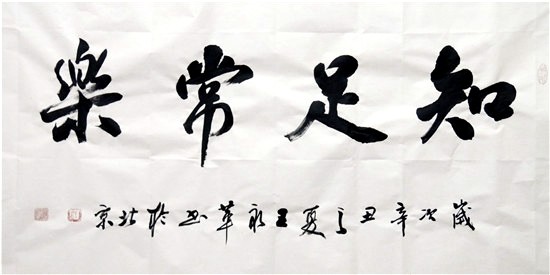 知足常樂
歲次辛丑之夏王永華書於北京